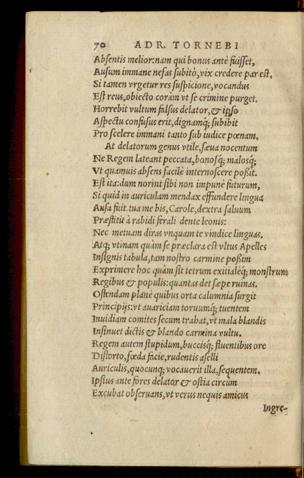 70 ADR. TORNEBI
Absentis melior: nam qui bonus antè fuisset,
Ausum immane nefas subitò, vix credere par est.
Si tamen vrgetur res suspicione, vocandus
Est reus, obiecto coràm vt se crimine purget.
Horrebit vultum falsus delator, & ipso
Aspectu confusus erit, dignamq; subibit
Pro scelere immani tanto sub iudice pœnam.
At delatorum genus vtile, sæua nocentum
Ne Regem lateant peccata, bonosq; malosq;
Vt quamuis absens facilè internoscere poßit.
Est ita: dum norint sibi non impunè futurum,
Si quid in auriculam mendax effundere lingua
Ausa fuit. tua me bis, Carole, dextra saluum
Præstitit à rabidi ferali dente leonis:
Nec metuam diras vnquam te vindice linguas.
Atq; vtinam quàm se præclara est vltus Apelles
Insignis tabula, tam nostro carmine possim
Exprimere hoc quàm sit tetrum exitialéq; monstrum
Regibus & populis: quantas det sæpe ruinas.
Ostendam planè quibus orta calumnia surgit
Principijs: vt auariciam toruumq; tuentem
Inuidiam comites secum trabat, vt mala blandis
Instruet dictis & blando carmina vultu.
Regem autem stupidum, buccisq; fluentibus ore
Distorto, fœda facie, rudentis aselli
Auriculis, quocunq; vocauerit illa, sequentem.
Ipsius ante fores delator & ostia circum
Excubat obseruans, vt verus nequis amicus
Ingre-